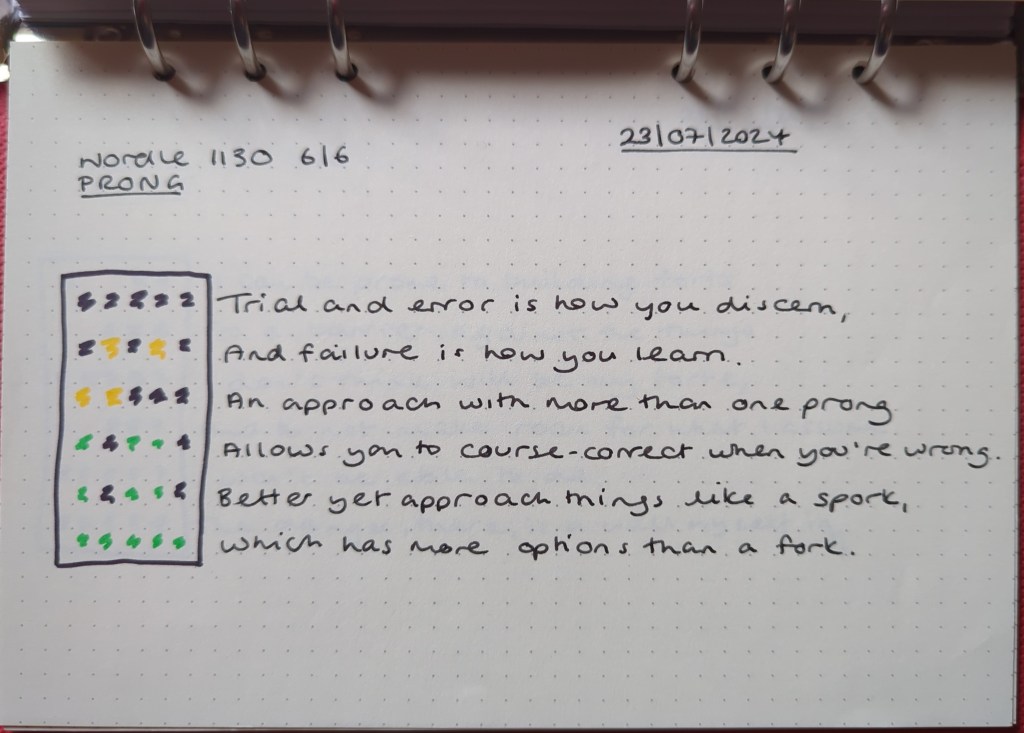 23/07/2024
Wordle 1130 6/6
PRONG
Trial and error is how you discern,
And failure is how you learn.
An approach with more than one prong
Allows you to course-correct when you're wrong.
Better yet approach things like a spork,
Which has more options than a fork.